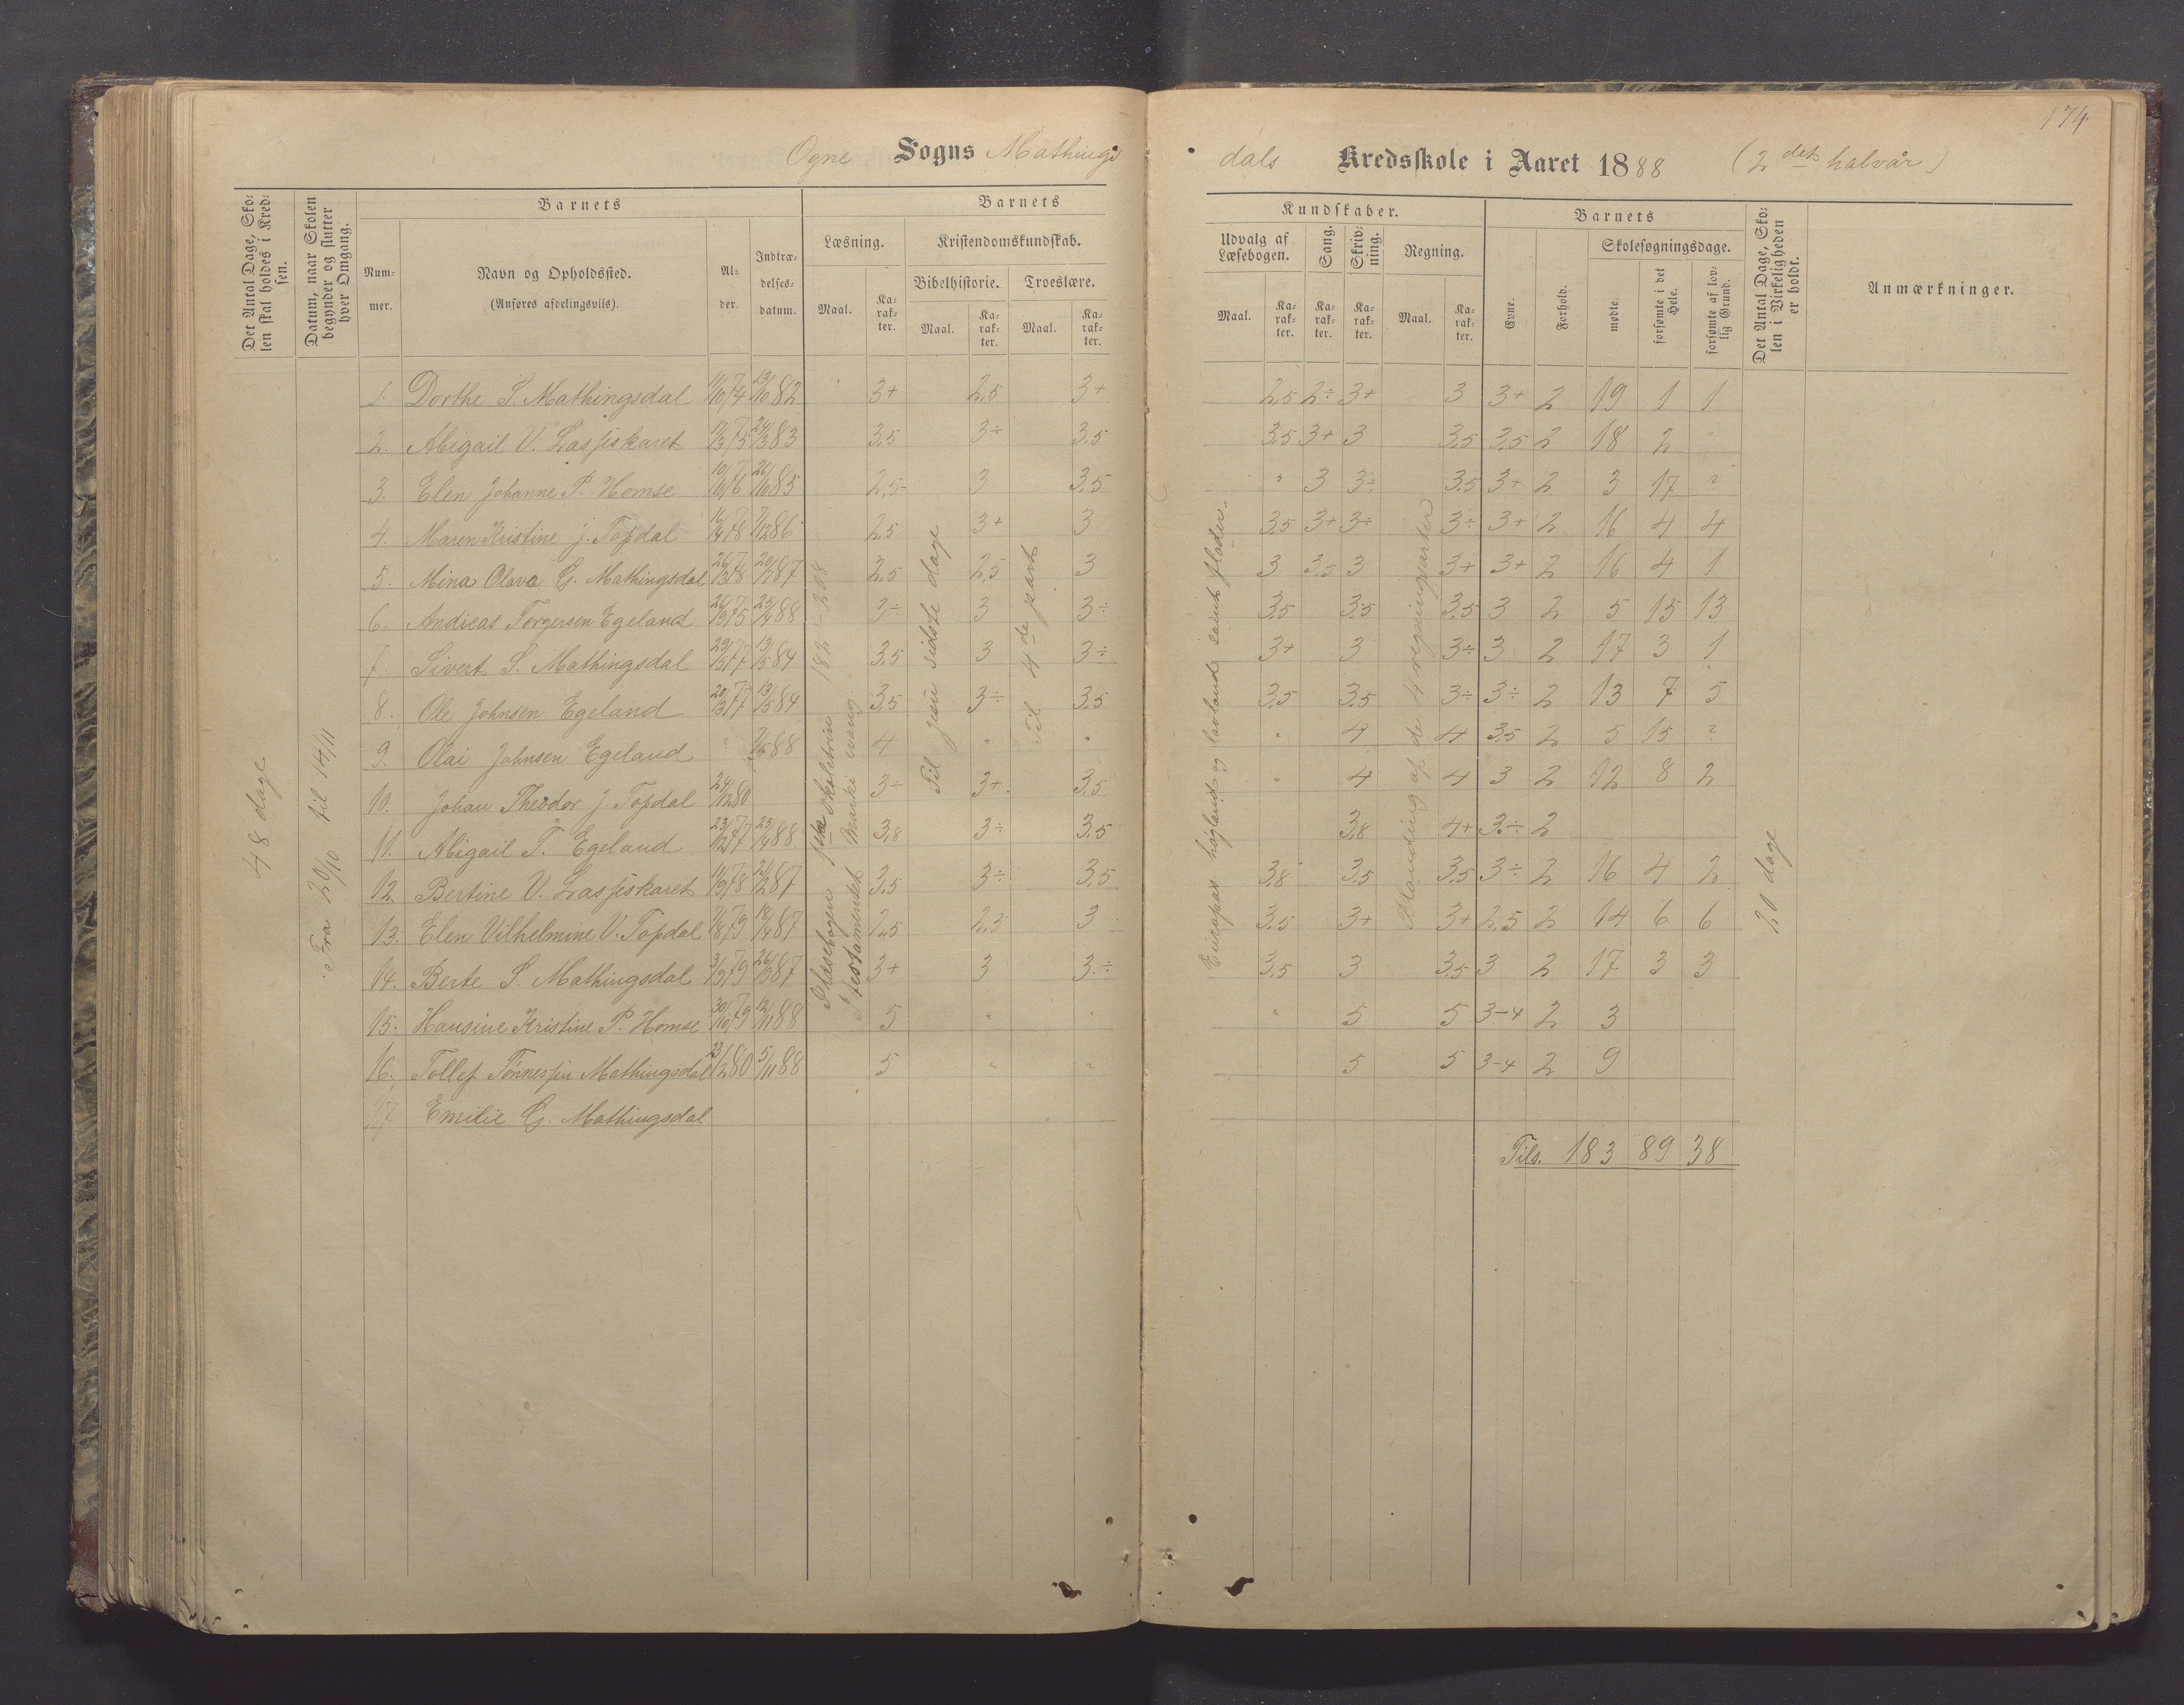 174
Ogne Sogns Mathings dals Kredsskole i Aaret 1888 (2det halvår)
Det Antal Dage, Skolen skal holdes i Kredsen.
Datum, naar Skolen begynder og slutter hver Omgang.
Barnets
Nummer.
Navn og Opholdssted.
(Anføres afdelingsvis).
Alder.
Indtrædelsesdatum.
Barnets Kundskaber.
Læsning.
Maal. Karakter.
Kristendomskundskab.
Bibelhistorie. Troeslære.
Maal. Karakter. Maal. Karakter.
Udvalg af Læsebogen.
Maal. Karakter.
Sang. Karakter.
Skrivning. Karakter.
Regning.
Maal. Karakter.
Barnets
Evne. Forhold.
Skolesøgningsdage.
mødte. forsømte i det Hele. forsømte af lovlig Grund.
Det Antal Dage, Skolen i Virkeligheden er holdt.
Anmærkninger.
48 dage
Fra 20/10 til 14/11
1. Dorthe S. Mathingsdal 11/10 74 13/10 82 3+ 2,5 3+ 2,5 2÷ 3+ 3 3+ 2 19 1 1
2. Abigail V. Lasseskaret 3,5 3÷ 3,5 3,5 3+ 3 3,5 3,5 2 18 2
3. Elen Johanne P. Homse 10/10 76 26/10 85 2,5 3 3,5 " 3 3÷ 3,5 3+ 2 3 17 ?
4. Maren Kristine J. Topdal 16/4 78 7/12 86 2,5 3+ 3 3,5 3+ 3÷ 3÷ 3+ 2 16 4 4
5. Mina Olava G. Mathingsdal 26/3 78 2,5 2,5 3 3 3,5 3 3+ 3+ 2 16 4 1
6. Andreas Torgersen Egeland 26/3 75 25/4 88 3÷ 3 3÷ 3,5 3,5 3,5 3 2 5 15 13
7. Sivert S. Mathingsdal 29/5 77 13/5 84 3,5 3 3÷ 3+ 3 3÷ 3 2 17 3 1
8. Ole Johnsen Egeland 20/3 77 13/5 84 3,5 3÷ 3,5 3,5 3,5 3÷ 3÷ 2 13 7 5
9. Olai Johnsen Egeland " 7/5 88 4 " " " 4 4 3,5 2 5 15 ?
10. Johan Theodor J. Topdal 24/12 80 3÷ 3+ 3,5 " 4 4 3 2 12 8 2
11. Abigail T. Egeland 23/12 77 25/4 88 3,8 3÷ 3,5 3,8 4+ 3÷ 2
12. Bertine V. Lasseskaret 11/9 78 21/2 87 3,5 3÷ 3,5 3,8 3,5 3,5 3÷ 2 16 4 2
13. Elen Vilhelmine V. Topdal 7/8 79 18/4 87 2,5 2,5 3 3,5 3+ 3+ 2,5 2 14 6 6
14. Berte S. Mathingsdal 3/9 79 3+ 3 3÷ 3,5 3 3,5 3 2 17 3 3
15. Hansine Kristine P. Homse 30/10 79 12/11 88 5 " " " 5 5 3-4 2 3
16. Tollef Tønnessen Mathingsdal 23/2 80 5/11 88 5 " " 5 5 3-4 2 9
17 Emilie G. Mathingsdal
I læsebogen 1ste skoletrin 182-208
I testamentet Marki evang.
Til jesu sidste dage
Til 4de part
Europas høgland og lavland samt floder.
Blanding af de 4 regningsarter
20 dage
Tils. 183 89 38